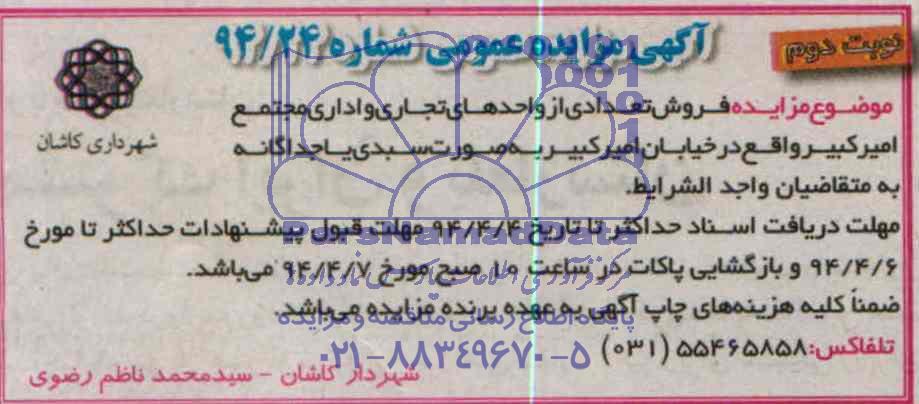 نوبت دوم
آگهی مزایده عمومی شماره ۹۴/۲۴
شهرداری کاشان
موضوع مزایده فروش تعدادی از واحدهای تجاری و اداری مجتمع
امیرکبیر واقع در خیابان امیرکبیر به صورت سبدی یا جداگانه
به متقاضیان واجد الشرایط.
مهلت دریافت اسناد حداکثر تا تاریخ ۹۴/۴/۴ مهلت قبول پیشنهادات حداکثر تا مورخ
۹۴/۴/۶ و بازگشایی پاکات در ساعت ۱۰ صبح مورخ ۹۴/۴/۷ می‌باشد.
ضمناً کلیه هزینه‌های چاپ آگهی به عهده برنده مزایده می‌باشد.
تلفاکس: ۵۵۴۶۵۸۵۸ (۰۳۱)
شهردار کاشان - سیدمحمد ناظم رضوی
ParsNamadData
پایگاه اطلاع رسانی مناقصه و مزایده
۰۲۱-۸۸۳۴۹۶۷۰-۵